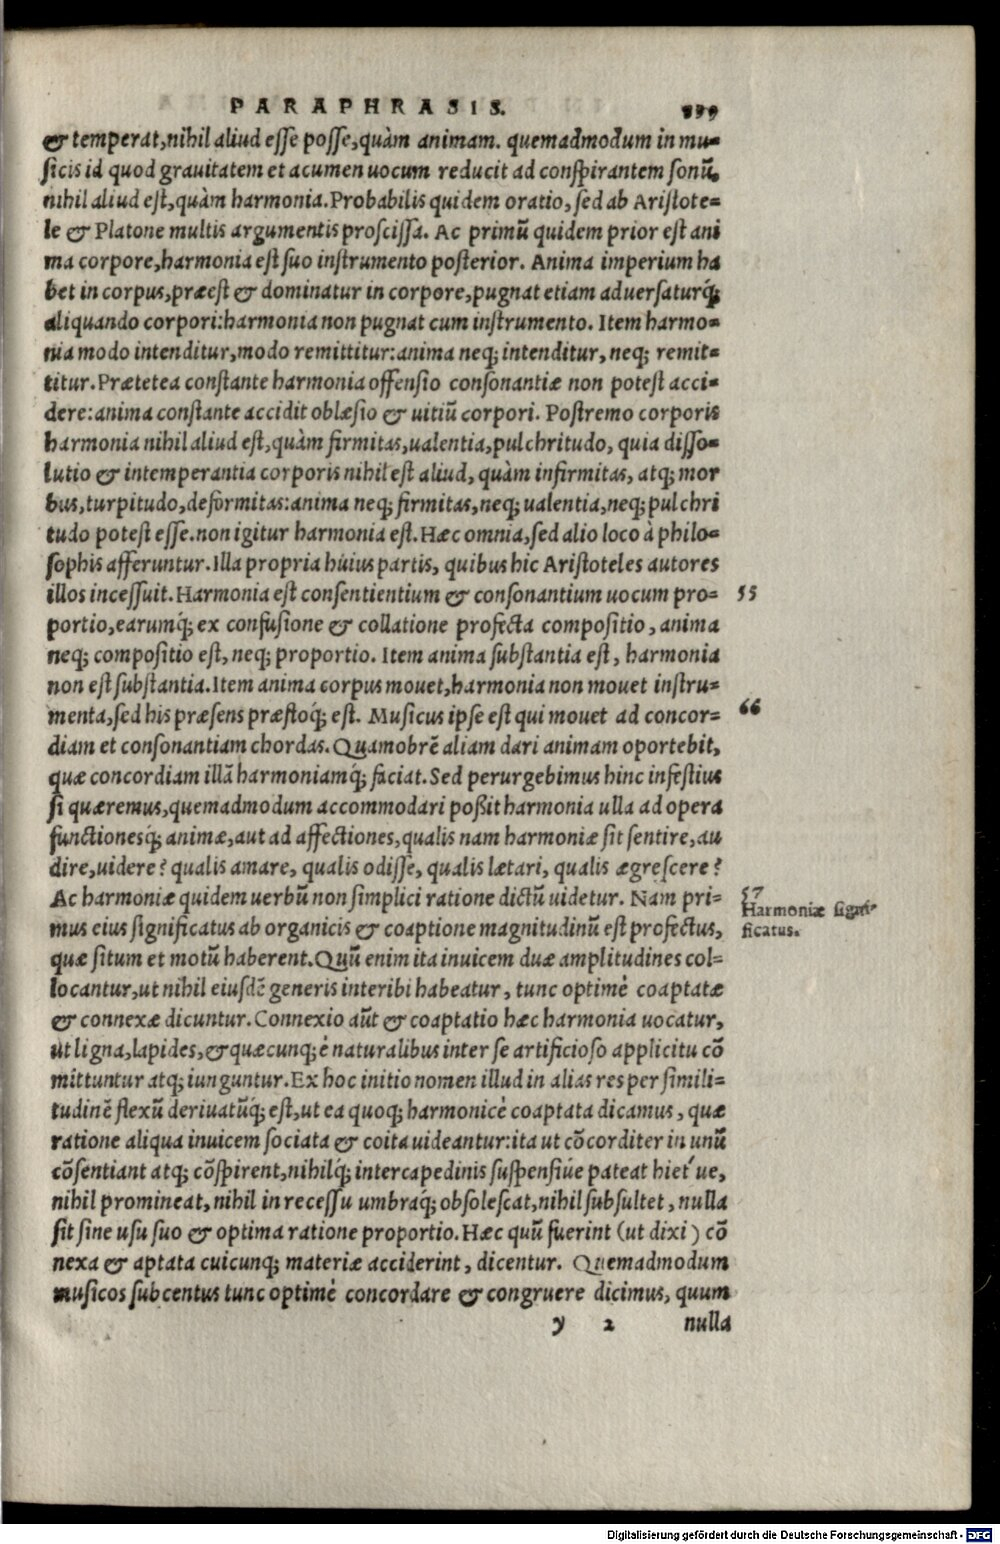 PARAPHRASIS. 339
& temperat, nihil aliud esse posse, quàm animam. quemadmodum in mu-
sicis id quod grauitatem et acumen uocum reducit ad conspirantem sonũ,
nihil aliud est, quàm harmonia. Probabilis quidem oratio, sed ab Aristote-
le & Platone multis argumentis proscissa. Ac primũ quidem prior est ani
ma corpore, harmonia est suo instrumento posterior. Anima imperium ha
bet in corpus, præest & dominatur in corpore, pugnat etiam aduersaturq́;
aliquando corpori: harmonia non pugnat cum instrumento. Item harmo-
nia modo intenditur, modo remittitur: anima neq; intenditur, neq; remit-
titur. Prætetea constante harmonia offensio consonantiæ non potest acci-
dere: anima constante accidit oblæsio & uitiũ corpori. Postremo corporis
harmonia nihil aliud est, quàm firmitas, ualentia, pulchritudo, quia disso-
lutio & intemperantia corporis nihil est aliud, quàm infirmitas, atq; mor
bus, turpitudo, deformitas: anima neq; firmitas, neq; ualentia, neq; pulchri
tudo potest esse. non igitur harmonia est. Hæc omnia, sed alio loco à philo-
sophis afferuntur. Illa propria huius partis, quibus hic Aristoteles autores
illos incessuit. Harmonia est consentientium & consonantium uocum pro- 55
portio, earumq́; ex confusione & collatione profecta compositio, anima
neq; compositio est, neq; proportio. Item anima substantia est, harmonia
non est substantia. Item anima corpus mouet, harmonia non mouet instru-
menta, sed his præsens præstoq́; est. Musicus ipse est qui mouet ad concor- 66
diam et consonantiam chordas. Quamobrẽ aliam dari animam oportebit,
quæ concordiam illã harmoniamq́; faciat. Sed perurgebimus hinc infestius
si quæremus, quemadmodum accommodari poßit harmonia ulla ad opera
functionesq́; animæ, aut ad affectiones, qualis nam harmoniæ sit sentire, au
dire, uidere? qualis amare, qualis odisse, qualis lætari, qualis ægrescere?
Ac harmoniæ quidem uerbũ non simplici ratione dictũ uidetur. Nam pri- 57
mus eius significatus ab organicis & coaptione magnitudinũ est profectus,
Harmoniæ signi-
ficatus.
quæ situm et motũ haberent. Quũ enim ita inuicem duæ amplitudines col-
locantur, ut nihil eiusdẽ generis interibi habeatur, tunc optimè coaptatæ
& connexæ dicuntur. Connexio aũt & coaptatio hæc harmonia uocatur,
ut ligna, lapides, & quæcunq; è naturalibus inter se artificioso applicitu cõ
mittuntur atq; iunguntur. Ex hoc initio nomen illud in alias res per simili-
tudinẽ flexũ deriuatũq́; est, ut ea quoq; harmonicè coaptata dicamus, quæ
ratione aliqua inuicem sociata & coita uideantur: ita ut cõcorditer in unũ
cõsentiant atq; cõspirent, nihilq́; intercapedinis suspensiúe pateat hiet´ue,
nihil promineat, nihil in recessu umbraq́; obsolescat, nihil subsultet, nulla
sit sine usu suo & optima ratione proportio. Hæc quũ fuerint (ut dixi) cõ
nexa & aptata cuicunq; materiæ acciderint, dicentur. Quemadmodum
musicos subcentus tunc optimè concordare & congruere dicimus, quum
y 2 nulla
Digitalisierung gefördert durch die Deutsche Forschungsgemeinschaft - DFG